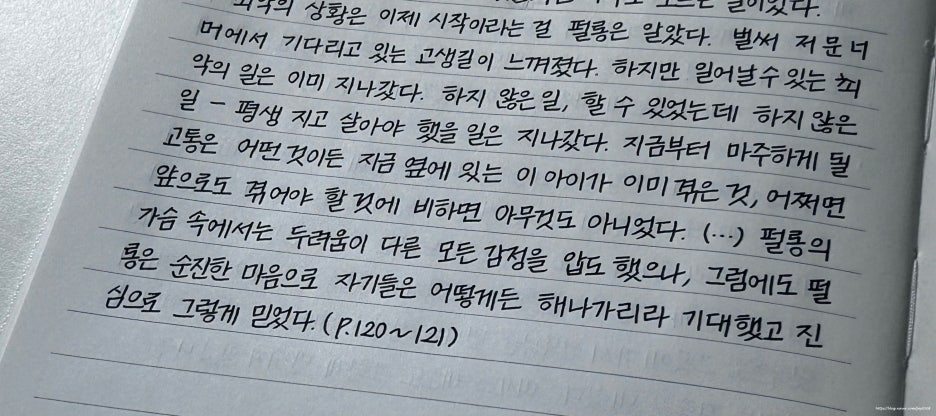 최악의 상황은 이제 시작이라는 걸 펄롱은 알았다. 벌써 저 문 너
머에서 기다리고 있는 고생길이 느껴졌다. 하지만 일어날 수 있는 최
악의 일은 이미 지나갔다. 하지 않은 일, 할 수 있었는데 하지 않은
일 - 평생 지고 살아야 했을 일은 지나갔다. 지금부터 마주하게 될
고통은 어떤 것이든 지금 옆에 있는 이 아이가 이미 겪은 것, 어쩌면
앞으로도 겪어야 할 것에 비하면 아무것도 아니었다. (…) 펄롱의
가슴 속에서는 두려움이 다른 모든 감정을 압도 했으나, 그럼에도 펄
롱은 순진한 마음으로 자기들은 어떻게든 해나가리라 기대했고 진
심으로 그렇게 믿었다. (P.120~121)